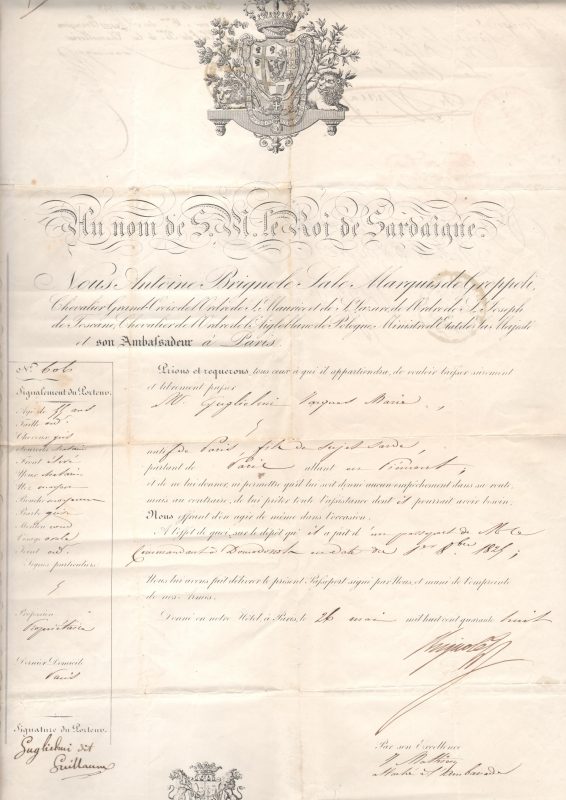 Au nom de S. M. le Roi de Sardaigne.
Nous Antoine Brignole Sale Marquis de Groppoli,
Chevalier Grand-Croix de l'Ordre de St. Maurice et de St. Lazare, de l'Ordre de St. Joseph
de Toscane, Chevalier de l'Ordre de l'Aigle blanc de Pologne, Ministre d'Etat de Sa Majesté
et son Ambassadeur à Paris
No. 606
Signalement du Porteur.
Agé de ans
Taille
Cheveux gris
Front
Yeux
Nez moyen
Bouche moyenne
Barbe grise
Menton rond
Visage ovale
Teint
Signes particuliers
Profession
Propriétaire
Dernier Domicile
Paris
Signature du Porteur.
Guglielmi dit
Guillaume
Prions et requerons tous ceux à qui il appartiendra, de vouloir laisser surement
et librement passer
Mr. Guglielmi Marie,
natif de Paris, fils de sujet sarde,
partant de Paris allant en Piemont,
et de ne lui donner, ni permettre qu'il lui soit donné aucun empêchement dans sa route,
mais au contraire, de lui prêter toute l'assistance dont il pourrait avoir besoin.
Nous offrant d'en agir de même dans l'occasion.
A l'effet de quoi, sur le dépôt qu'il a fait d'un passeport de Mr. le
Commandant à Domodossola en date du 8bre
Nous lui avons fait délivrer le présent Passeport signé par Nous et muni de l'empreinte
de nos armes.
Donné en notre Hôtel à Paris, le 26 mai mil huit cent quarante huit
Brignole
Par son Excellence